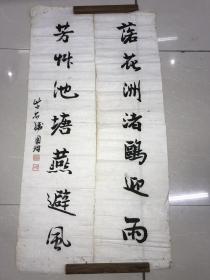 落花洲渚鷗迎雨
芳艸池塘燕避風